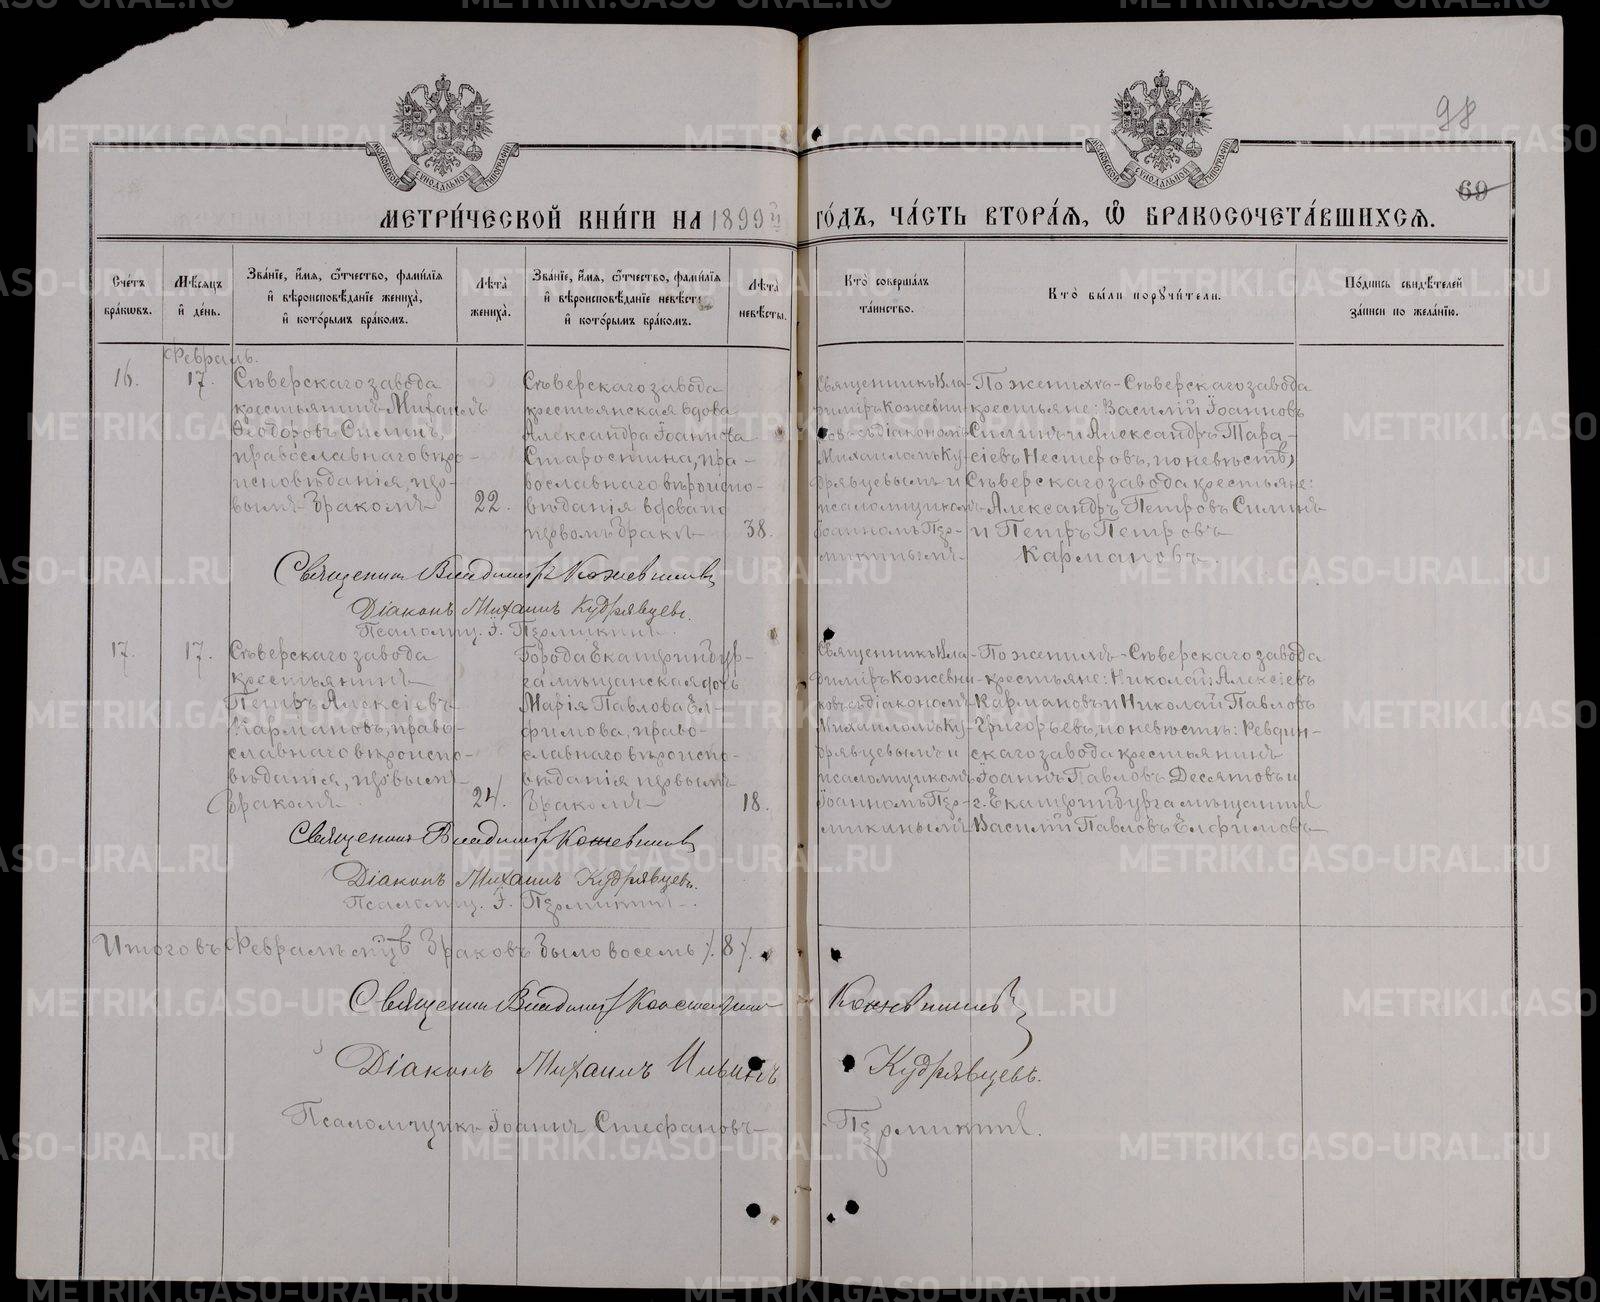 98
69
МЕТРИ́ЧЕСКОЙ КНИ́ГИ НА 1899й ГО́ДЪ, ЧА́СТЬ ВТОРА́Я, Ѽ БРАКОСОЧЕТА́ВШИХСЯ.
Сче́тъ бра́кѡвъ.
Мѣ́сяцъ и҆ де́нь.
Зва́нїе, и҆́мя, ѻ҆́тчество, фами́лїя и҆ вѣроисповѣ́данїе жениха̀, и҆ кото́рымъ бра́комъ.
Лѣ́та жениха̀.
Зва́нїе, и҆́мя, ѻ҆́тчество, фами́лїя и҆ вѣроисповѣ́данїе невѣ́сты и҆ кото́рымъ бра́комъ.
Лѣ́та невѣ́сты.
Кто̀ соверша́лъ та́инство.
Кто̀ бы́ли поручи́тели.
По́дпись свидѣ́телей за́писи по жела́нїю.
Февраль.
16.
17.
Сѣверскаго завода
крестьянинъ Михаилъ
Ѳеодоровъ Силинъ,
православнаго вѣро-
исповѣданія, пер-
вымъ бракомъ
22.
Сѣверскаго завода
крестьянская вдова
Александра Іоаннова
Старостина, пра-
вославнаго вѣроиспо-
вѣданія вдова по
первомъ бракѣ
38.
Священникъ Вла-
димiръ Кожевни-
ковъ съ діакономъ
Михаиломъ Ку-
дрявцевымъ и
псаломщикомъ
Іоанномъ Пер-
микинымъ
По женихѣ - Сѣверскаго завода
крестьяне: Василій Іоанновъ
Силинъ и Александръ Тара-
сіевъ Нестеровъ, по невѣстѣ,
Сѣверскаго завода крестьяне:
Александръ Петровъ Силинъ
и Петръ Петровъ
Кармановъ
Священникъ Владиміръ Кожевниковъ
Діаконъ Михаилъ Кудрявцевъ.
Псаломщ. І. Пермикинъ.
17.
17.
Сѣверскаго завода
крестьянинъ
Петръ Алексіевъ
Кармановъ, право-
славнаго вѣроиспо-
вѣданія, первымъ
бракомъ
24.
Города Екатеринбур-
га мѣщанская дочь
Марія Павлова Ел-
фимова, право-
славнаго вѣроиспо-
вѣданія первымъ
бракомъ
18.
Священникъ Вла-
димiръ Кожевни-
ковъ съ діакономъ
Михаиломъ Ку-
дрявцевымъ и
псаломщикомъ
Іоанномъ Пер-
микинымъ
По женихѣ - Сѣверскаго завода
крестьяне: Николай Алексіевъ
Кармановъ и Николай Павловъ
Григорьевъ, по невѣстѣ: Ревдин-
скаго завода крестьянинъ
Іоаннъ Павловъ Десятовъ и
г. Екатеринбурга мѣщанинъ
Василій Павловъ Елфимовъ
Священникъ Владиміръ Кожевниковъ
Діаконъ Михаилъ Кудрявцевъ.
Псаломщ. І. Пермикинъ.
Итого въ Февралѣ м-цѣ браковъ было восемь /8/.
Священникъ Владиміръ Константиновъ Кожевниковъ
Діаконъ Михаилъ Ильинъ Кудрявцевъ.
Псаломщикъ Іоаннъ Стефановъ Пермикинъ.
METRIKI.GASO-URAL.RU